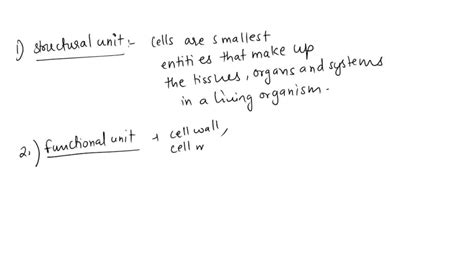 1) structural unit :- cells are smallest
entities that make up
the tissues, organs and systems
in a living organism.
2.) functional unit → cell wall,
cell m